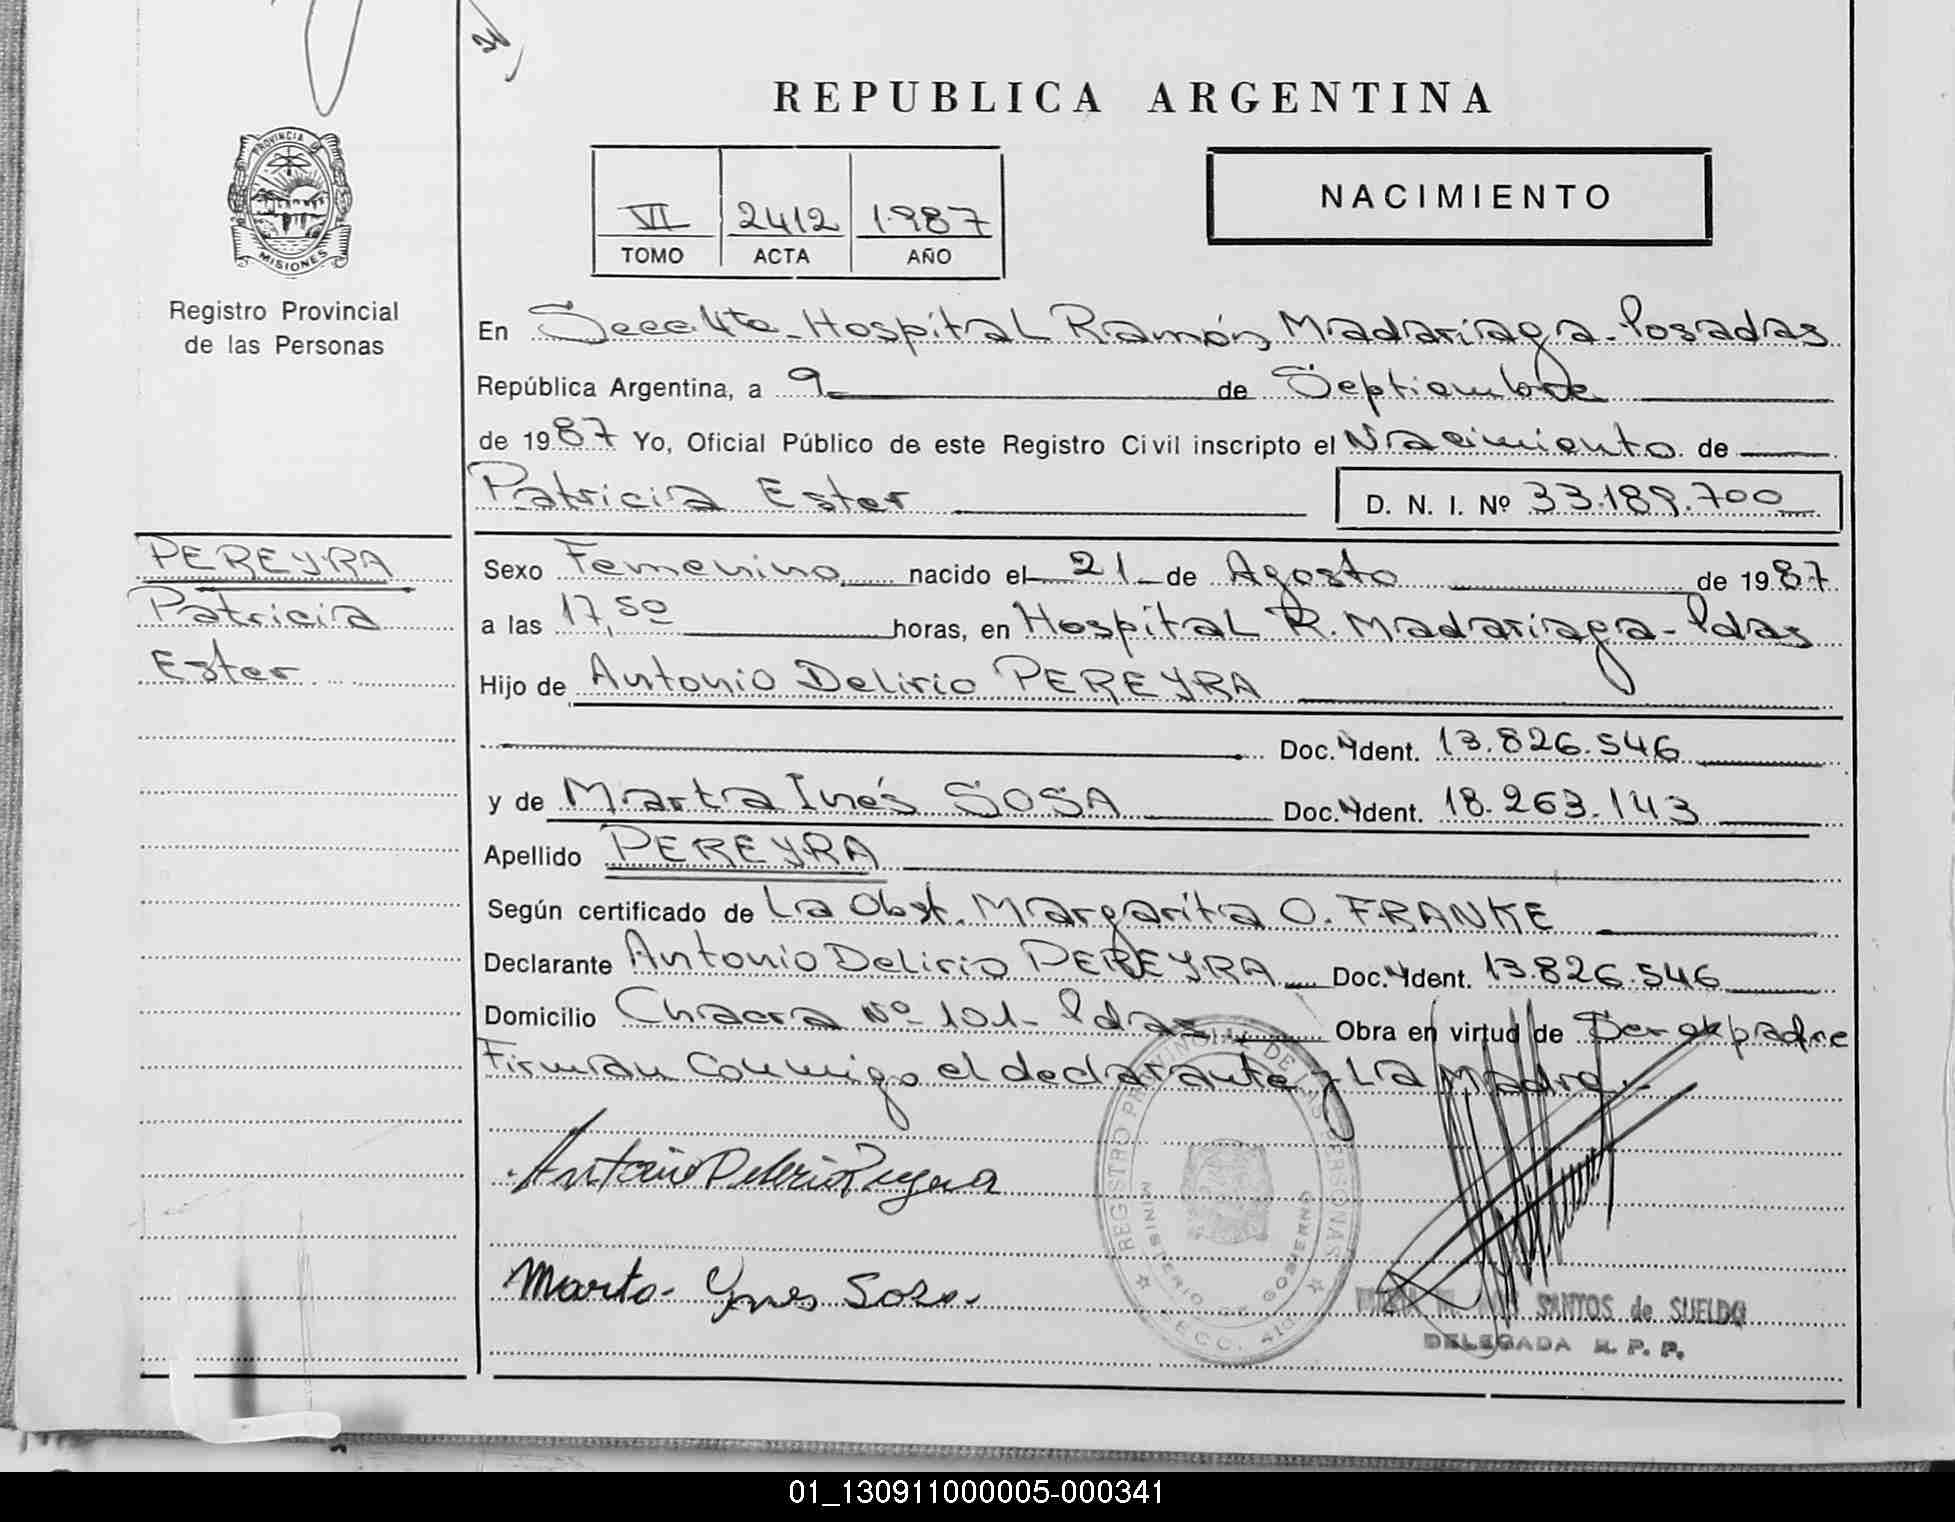 REPUBLICA ARGENTINA
PROVINCIA DE
MISIONES
Registro Provincial
de las Personas
VI 2412 1987
TOMO ACTA AÑO
NACIMIENTO
En Secc. 4ta - Hospital Ramón Madariaga - Posadas
República Argentina, a 9 de Septiembre
de 1987 Yo, Oficial Público de este Registro Civil inscripto el Nacimiento de
Patricia Ester D. N. I. Nº 33.189.700
PEREYRA
Patricia
Ester
Sexo Femenino nacido el 21 de Agosto de 1987
a las 17,50 horas, en Hospital R. Madariaga - Pdas
Hijo de Antonio Delirio PEREYRA
Doc. Ident. 13.826.546
y de Marta Inés SOSA Doc. Ident. 18.263.143
Apellido PEREYRA
Según certificado de La Obst. Margarita O. FRANKE
Declarante Antonio Delirio PEREYRA Doc. Ident. 13.826.546
Domicilio Chacra Nº 101 - Pdas Obra en virtud de Ser el padre
Firman Conmigo el declarante y La Madre.
Antonio Delirio Pereyra
Marta Ynes Sosa
REGISTRO PROVINCIAL DE LAS PERSONAS
MINISTERIO DE GOBIERNO
SECC. 4ta
SANTOS de SUELDO
DELEGADA R. P. P.
01_130911000005-000341